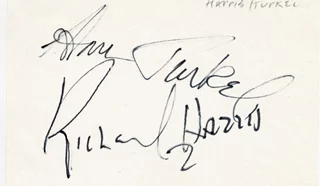 HARRIS/TURKEL
Ann Turkel
Richard Harris